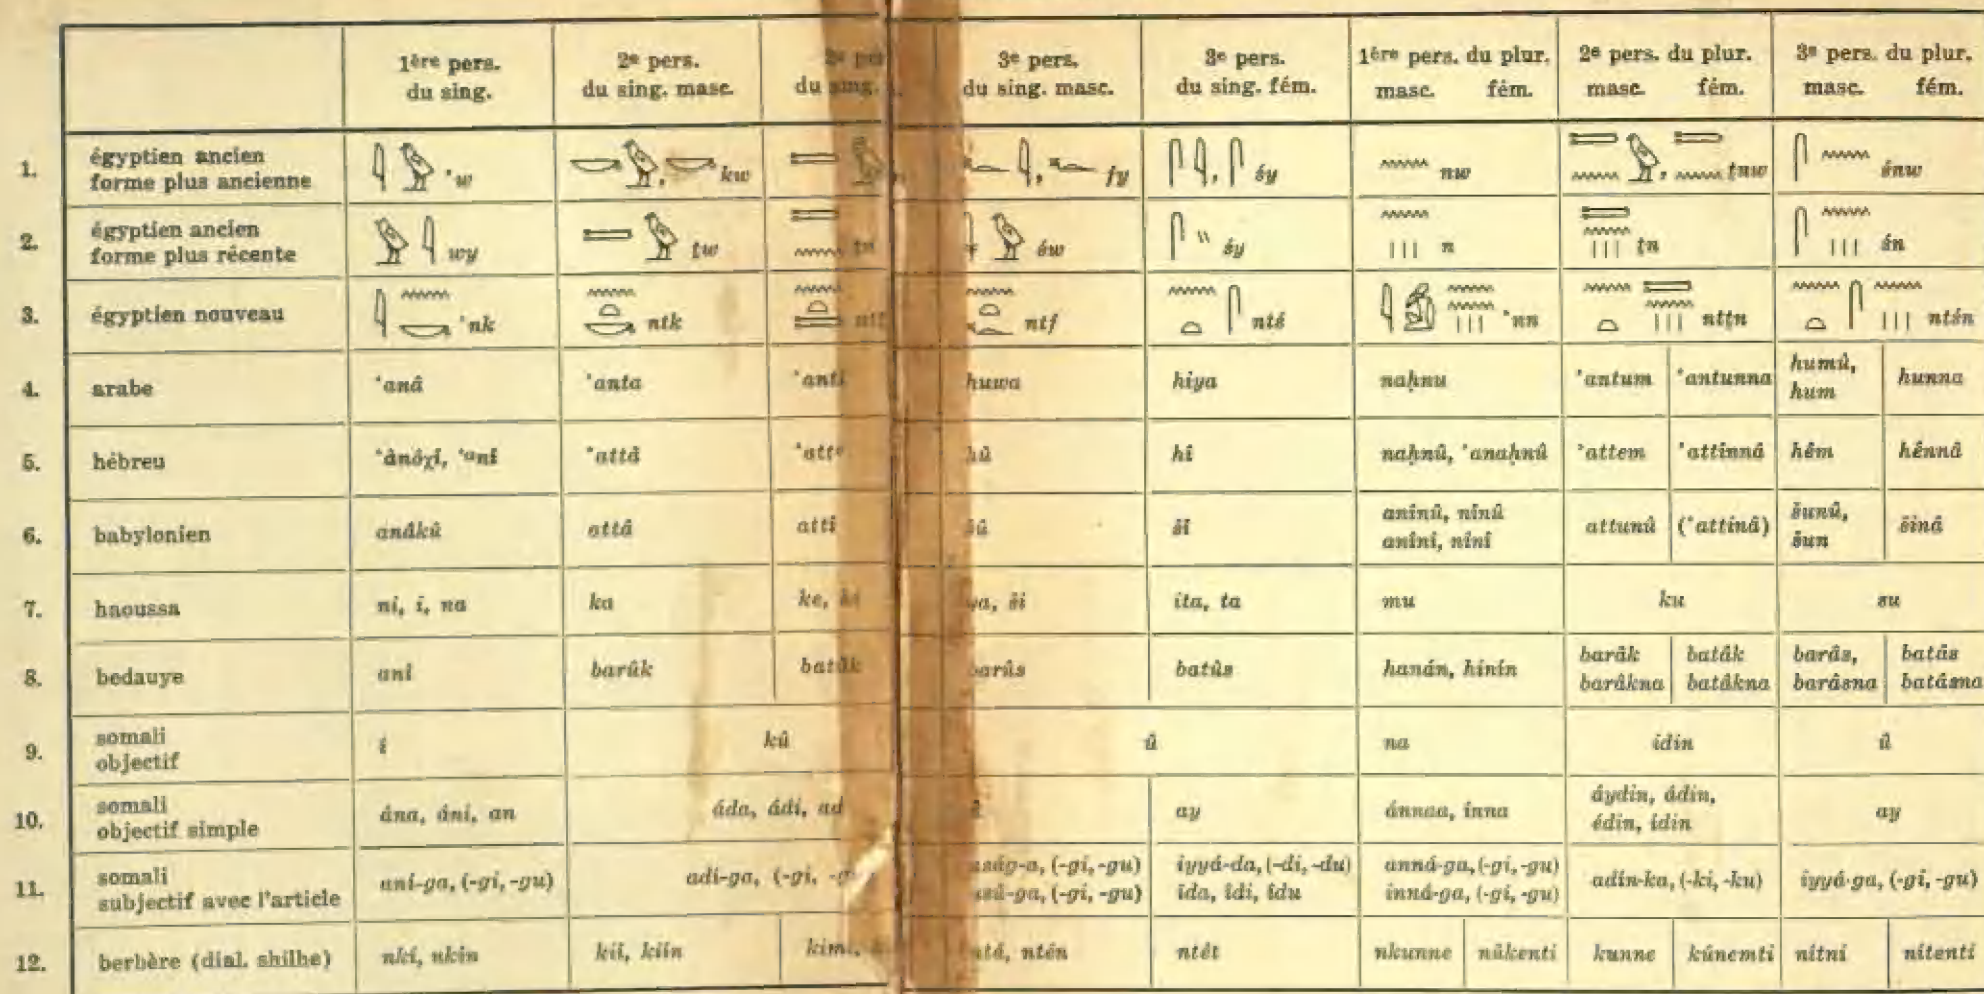 1ère pers. du sing.
2e pers. du sing. masc.
du sing.
3e pers. du sing. masc.
3e pers. du sing. fém.
1ère pers. du plur. masc. fém.
2e pers. du plur. masc. fém.
3e pers. du plur. masc. fém.
1. égyptien ancien forme plus ancienne 'w kw fy śy nw ṯnw śnw
2. égyptien ancien forme plus récente wy tw tn św śy n tn śn
3. égyptien nouveau 'nk ntk ntf ntś 'nn nttn ntśn
4. arabe 'anâ 'anta 'anti huwa hiya naḥnu 'antum 'antunna humû, hum hunna
5. hébreu 'ànôχí, 'ᵃní 'attâ hû hî naḥnû, 'anaḥnû 'attem 'attinnâ hêm hênnâ
6. babylonien anâkû attâ attî šî anînû, nînû anîni, nînî attunû ('attinâ) šunû, šun šinâ
7. haoussa ni, i, na ka ke, ši ita, ta mu ku su
8. bedauye ani barûk batûk barûs batûs hanán, hinín barâk barâkna batâk batâkna barâs, barâsna batâs batâsna
9. somali objectif i kû û na idin û
10. somali objectif simple ána, áni, an áda, ádi, ad ay ánnaa, ínna áydin, ádin, édin, ídin ay
11. somali subjectif avec l'article aní-ga, (-gi, -gu) adi-ga, (-gi, (-gi, -gu) (-gi, -gu) iyyá-da, (-di, -du) ída, ídi, ídu anná-ga, (-gi, -gu) inná-ga, (-gi, -gu) adín-ka, (-ki, -ku) iyyá-ga, (-gi, -gu)
12. berbère (dial. shilhe) nkí, nkin kií, kiín ntén ntêt nkunne nûkenti kunne kûnemti nítni nítenti